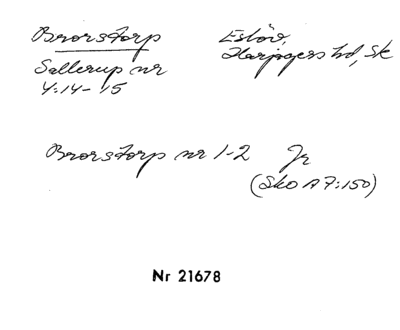 Brorstorp
Sallerup nr
4:14-15
Eslöv,
Harjagers hd, Sk
Brorstorp nr 1-2 Jr
(Sko A 7:150)
Nr 21678